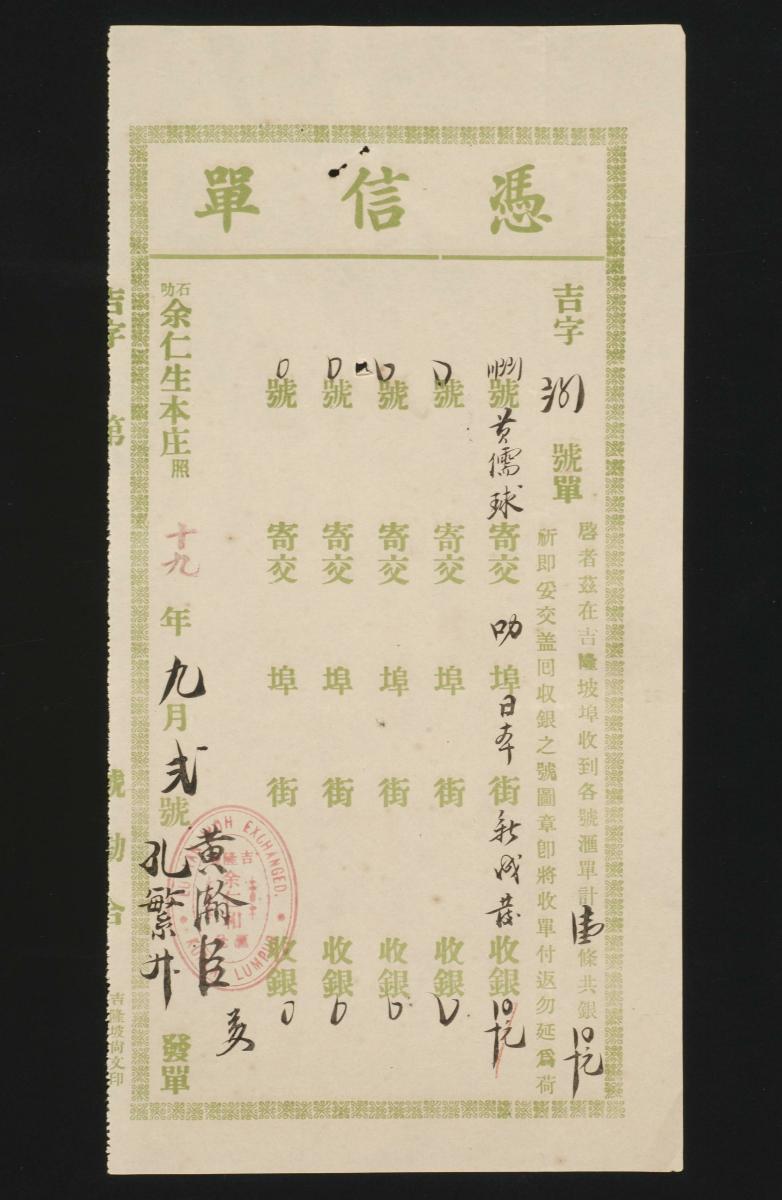 憑信單
吉字 號單
啓者茲在吉隆坡埠收到各號滙單計 條共銀
祈即妥交盖囘收銀之號圖章卽將收單付返勿延爲荷
號黃儒球寄交叻埠日本街新成發收銀
號 寄交 埠 街 收銀
號 寄交 埠 街 收銀
號 寄交 埠 街 收銀
號 寄交 埠 街 收銀
石叻余仁生本庄照
十九年九月弍號 發單
黃瀚臣
孔繁
EXCHANGED.
吉隆
LUMPUR
吉字 第 號勘合
吉隆坡尚文印